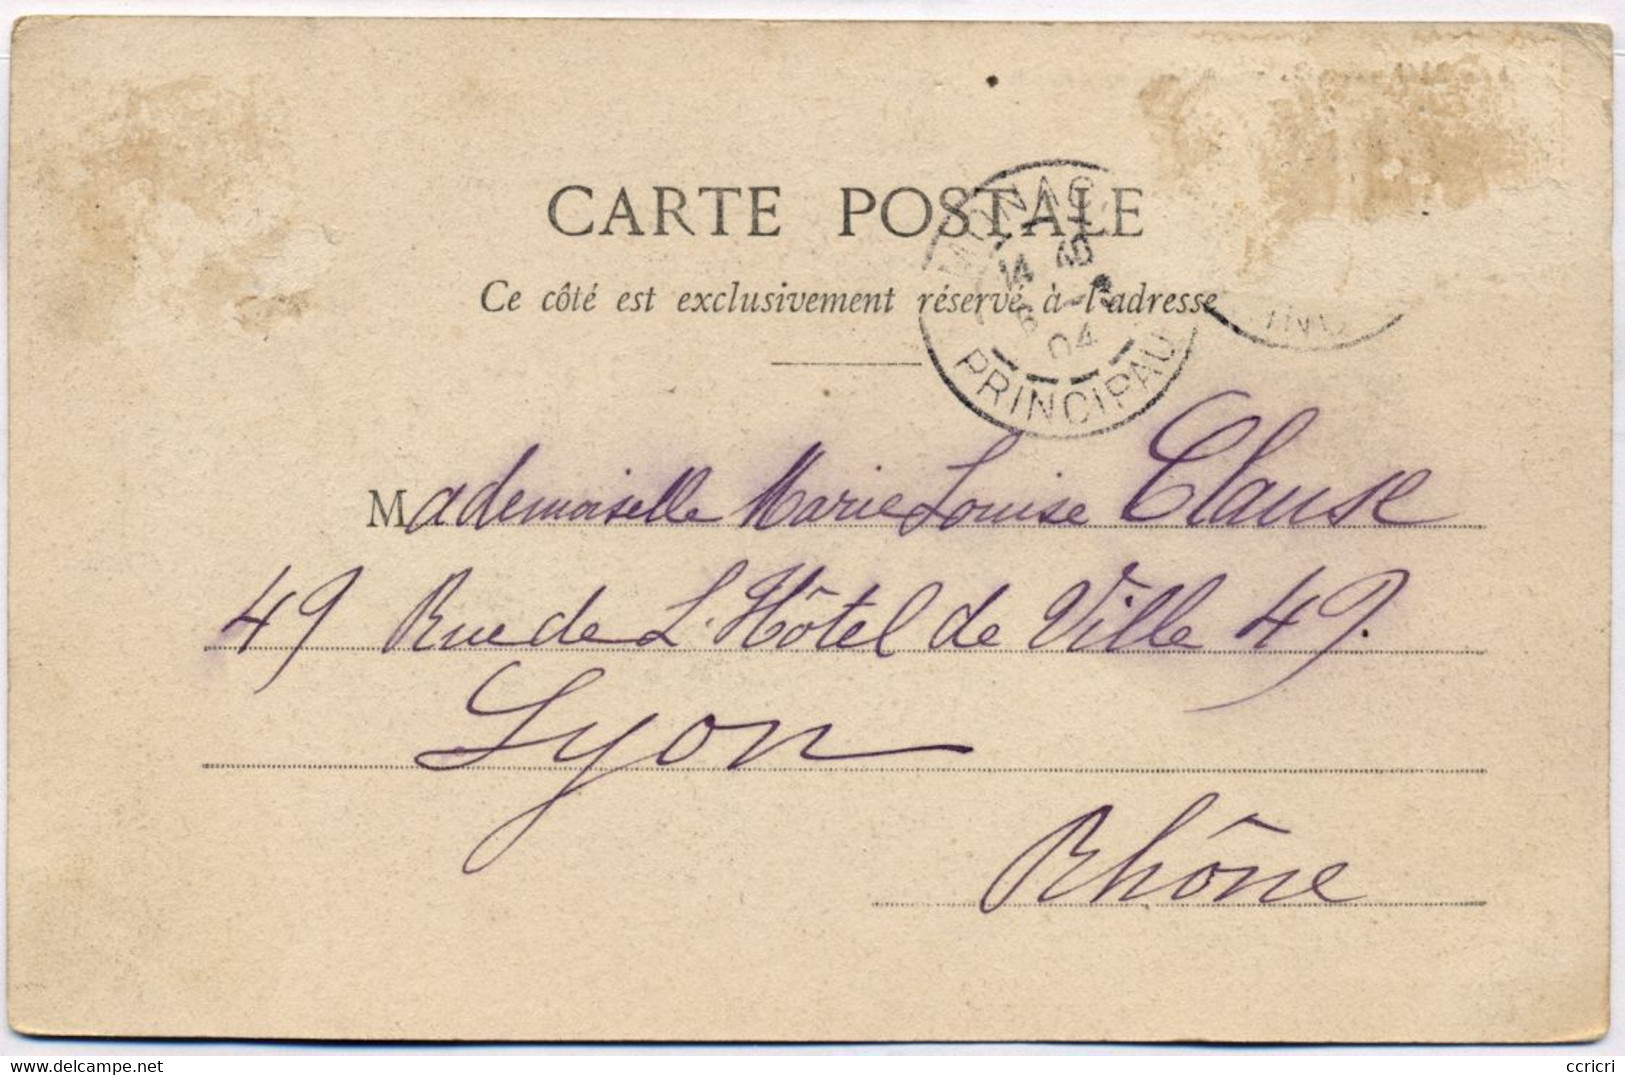 CARTE POSTALE
Ce côté est exclusivement réservé à l'adresse
14 40
04
PRINCIPAU
Mademoiselle Marie Louise Clause
49 Rue de L'Hôtel de Ville 49.
Lyon
Rhône
delcampe.net
ccricri